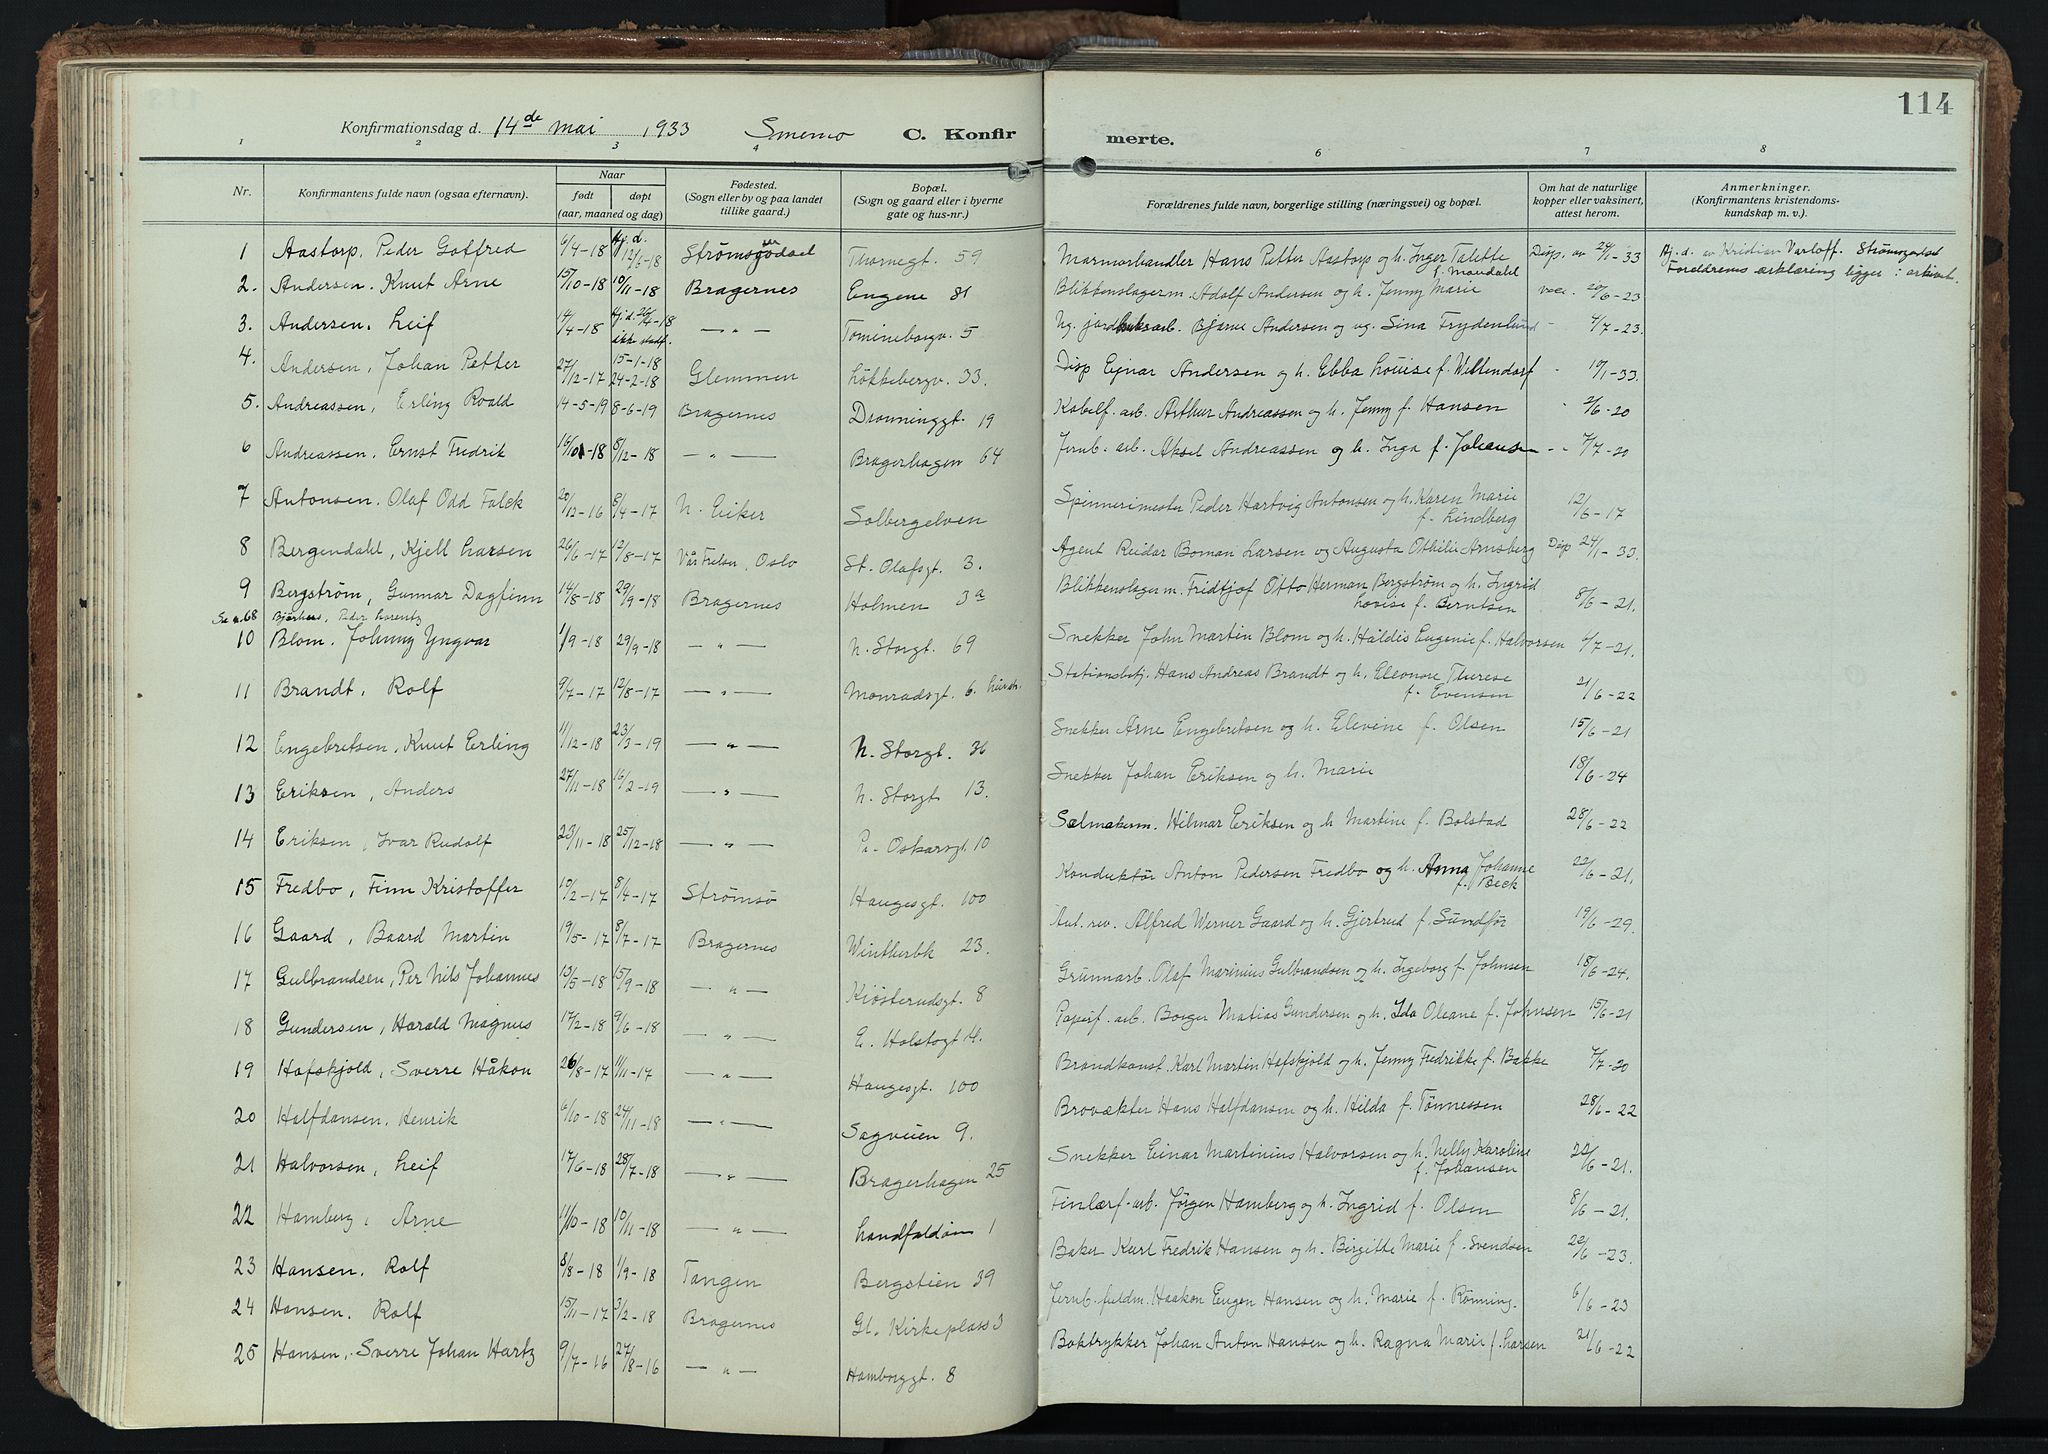 114
Konfirmationsdag d. 14de mai 1933 Smemo C. Konfirmerte.
1 2 3 4 6 7 8
Nr. Konfirmantens fulde navn (ogsaa efternavn). Naar født døpt (aar, maaned og dag) Fødested. (Sogn eller by og paa landet tillike gaard.) Bopæl. (Sogn og gaard eller i byerne gate og hus-nr.) Forældrenes fulde navn, borgerlige stilling (næringsvei) og bopæl. Om hat de naturlige kopper eller vaksinert, attest herom. Anmerkninger. (Konfirmantens kristendomskundskap m. v.)
1 Aastorp, Peder Gotfred 6/4-18 Hj. d. 12/6-18 Strømsgodset Thornegt. 59 Marmorhandler Hans Petter Aastorp og h. Inger Talette f. Mondahl Disp. av 24/1-33 Hj. d. av Kristian Varloff. Strømsgodset Foreldrenes erklæring ligger i arkivet.
2. Andersen. Knut Arne 15/10-18 10/11-18 Bragernes Engene 81 Blikkenslagerm. Adolf Andersen og h. Jenny Marie vacc. 20/6-23
3. Andersen. Leif 14/4-18 Hj. d. 26/4-18 ikke stadf. — " — Tomineborgv. 5 Ug. jordbruksarb. Bjarne Andersen og ug. Sina Frydenlund - 4/7-23.
4. Andersen, Johan Petter 27/12-17 15-1-18 24-2-18 Glemmen Løkkebergv. 33. Disp Ejnar Andersen og h. Ebba Louise f. Wettendorf - 19/1-33.
5. Andreassen, Erling Roald 14-5-19 8-6-19 Bragernes Dronninggt. 19 Kabelf. arb. Arthur Andreassen og h. Jenny f. Hansen - 2/6-20
6 Andreassen. Ernst Fredrik 16/10-18 8/12-18 — " — Bragerhagen 64 Jernb. arb. Aksel Andreassen og h. Inga f. Johansen - - 7/7-20
7 Antonsen. Olaf Odd Falck 20/12-16 8/4-17 N. Eiker Solbergelven Spinnerimester Peder Hartvig Antonsen og h. Karen Marie f. Lindberg 12/6-17
8 Bergendahl, Kjell Larsen 26/6-17 12/8-17 Vår Frelser, Oslo St. Olafsgt. 3. Agent Reidar Boman Larsen og Augusta Othilie Arnsberg Disp 24/1-33.
9 Bergstrøm, Gunnar Dagfinn 14/8-18 29/9-18 Bragernes Holmen 3a Blikkenslagerm. Fridtjof Otto Herman Bergstrøm og h. Ingrid Lovise f. Berntsen 8/6-21.
Se n. 68 Peder Lorentz
10 Blom. Johnny Yngvar 1/9-18 29/9-18 — " — N. Storgt. 69 Snekker John Martin Blom og h. Hildis Eugenie f. Halvorsen 6/7-21.
11 Brandt, Rolf 9/7-17 12/8-17 — " — Monradsgt. 6. Stationsbetj. Hans Andreas Brandt og h. Eleonore Therese f. Evensen 21/6-22
12 Engebretsen, Knut Erling 11/12-18 23/3-19 — " — N. Storgt. 36 Snekker Arne Engebretsen og h. Elevine f. Olsen 15/6-21
13 Eriksen, Anders 27/11-18 16/2-19 — " — N. Storgt 13. Snekker Johan Eriksen og h. Marie 18/6-24
14 Eriksen, Ivar Rudolf 23/11-18 25/12-18 — " — Pr. Oskarsgt. 10 Salmakerm. Hilmar Eriksen og h Martine f. Bolstad 28/6-22
15 Fredbo, Finn Kristoffer 10/2-17 8/4-17 Strømsø Haugesgt. 100 Konduktør Anton Pedersen Fredbo og h. Anna Johanne f. Beck 22/6-21.
16 Gaard, Baard Martin 19/5-17 8/7-17 Bragernes Wintherbk 23. Aut. rev. Alfred Werner Gaard og h. Gjertrud f. Sundfør 19/6-29.
17 Gulbrandsen, Per Nils Johannes 13/5-18 15/9-18 — " — Kiøsterudsgt. 8 Grunnarb. Olaf Marinius Gulbrandsen og h. Ingeborg f. Johnsen 18/6-24.
18 Gundersen, Harald Magnus 17/2-18 9/6-18 — " — E. Holstsgt 4. Papirf. arb. Borger Matias Gundersen og h. Ida Oleane f. Johnsen 15/6-21
19 Hofskjold, Sverre Håkon 26/8-17 11/11-17 — " — Haugesgt. 100 Brandkonst. Karl Martin Hofskjold og h. Jenny Fredrikke f. Bakke 7/7-20
20 Halfdansen. Henrik 6/10-18 24/11-18 — " — Sagveien 9. Brovækter Hans Halfdansen og h. Hilda f. Tønnessen 28/6-22
21 Halvorsen, Leif 17/6-18 28/7-18 — " — Bragerhagen 25 Snekker Einar Martinius Halvorsen og h. Nelly Karoline f. Johansen 22/6-21.
22 Hamberg, Arne 11/10-18 10/11-18 — " — Landfaldøen 1 Finlærf-arb. Jørgen Hamberg og h. Ingrid f. Olsen 8/6-21.
23 Hansen. Rolf 8/8-18 1/9-18 Tangen Bergstien 39 Baker Karl Fredrik Hansen og h. Birgitte Marie f. Svendsen 20/6-23.
24 Hansen. Rolf 15/11-17 3/2-18 Bragernes Gl. Kirkeplass 3 Jernb. fuldm. Haakon Eugen Hansen og h. Marie f. Rönning. 6/6-23
25 Hansen, Sverre Johan Hartz 9/7-16 27/8-16 — " — Hamborggt. 8 Boktrykker Johan Anton Hansen og h. Ragna Marie f. Larsen 21/6-22